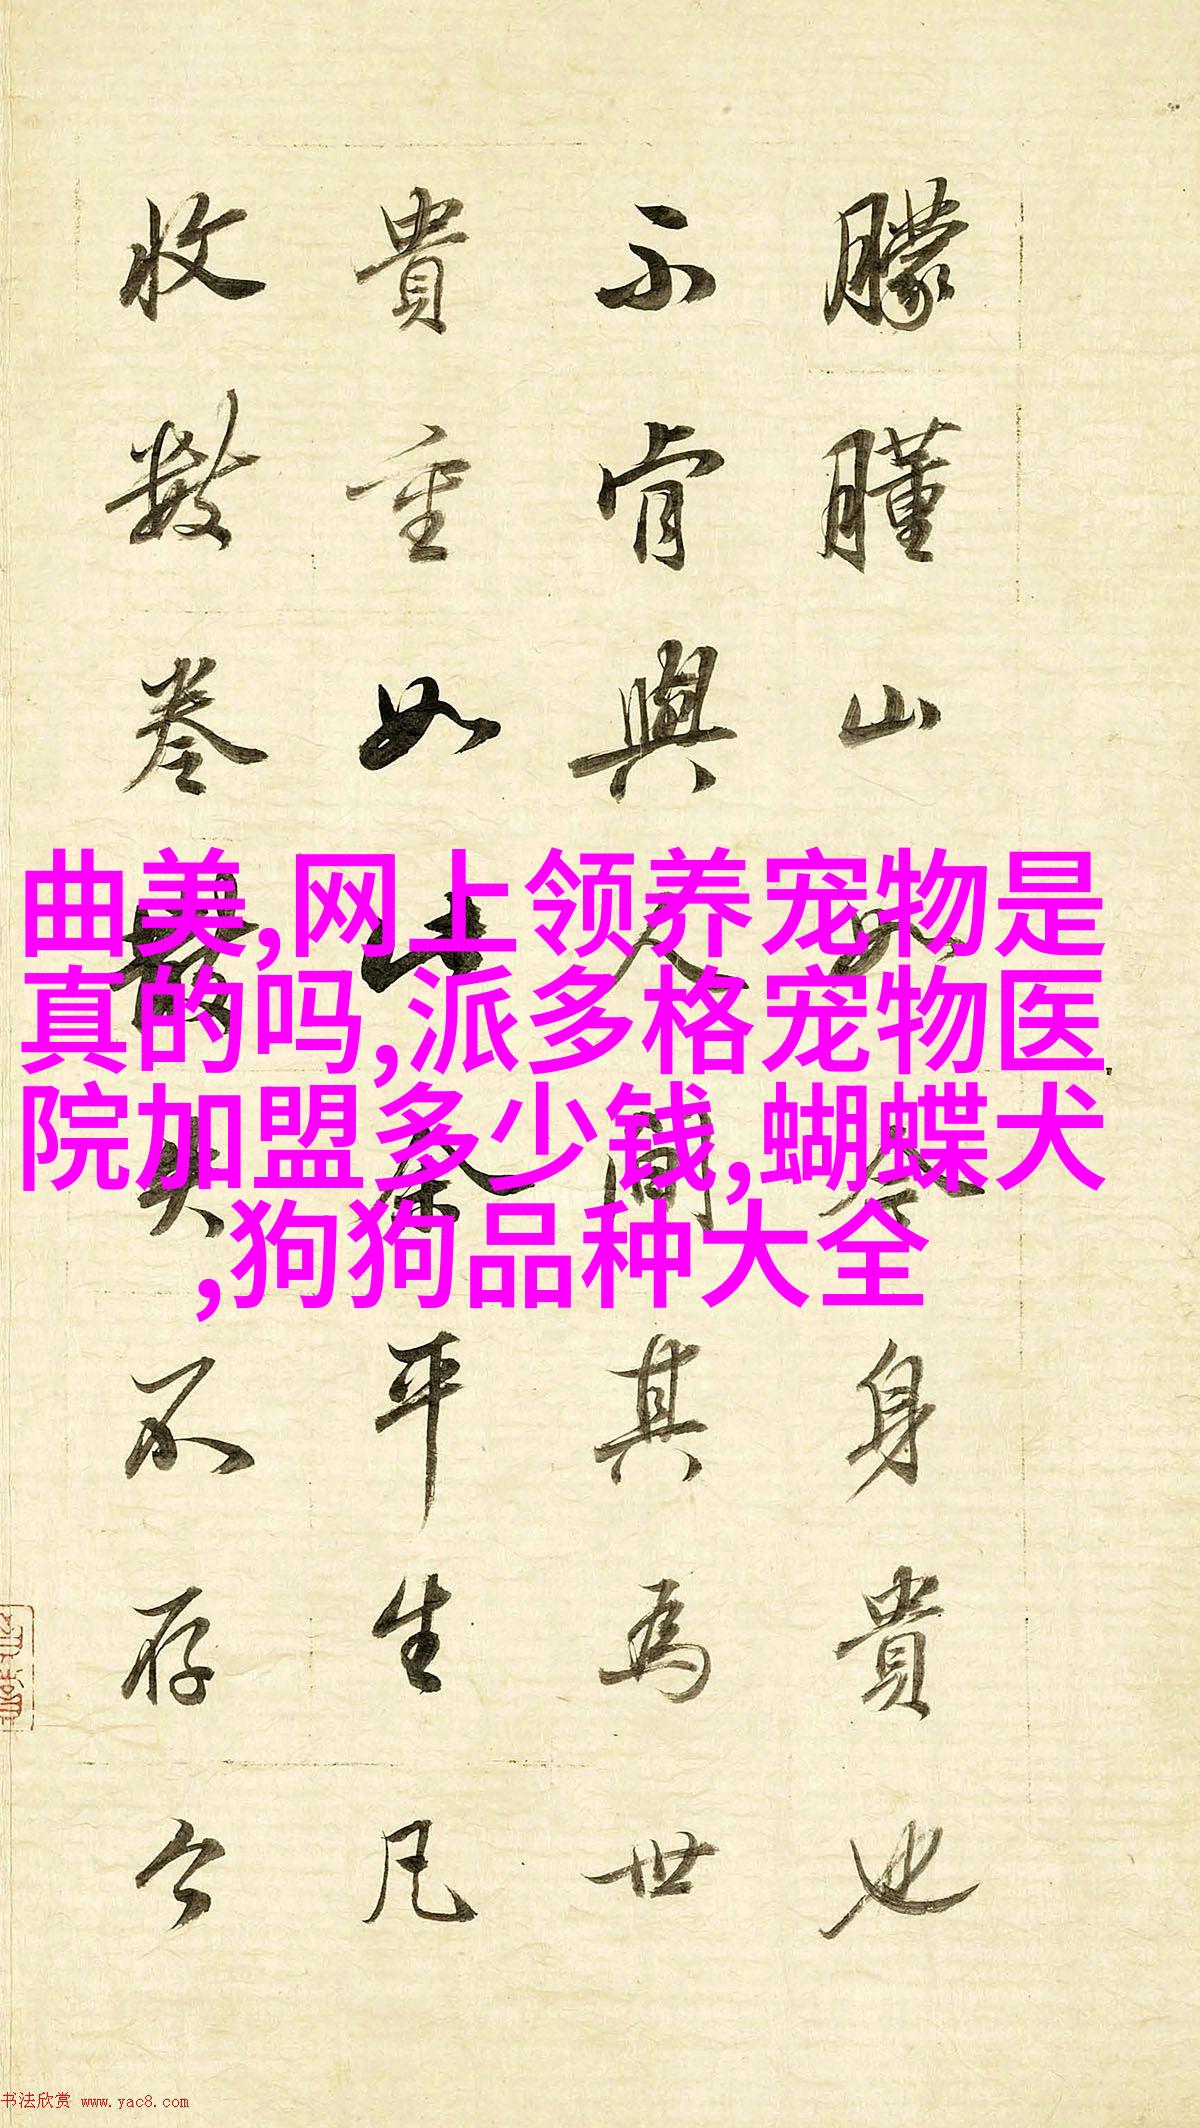 朦朣山身貴也
不肯與人間其為世
貴重如此余平生凡
收數卷散失不存今
曲美,网上领养宠物是
真的吗,派多格宠物医
院加盟多少钱,蝴蝶犬
,狗狗品种大全
书法欣赏 www.yac8.com